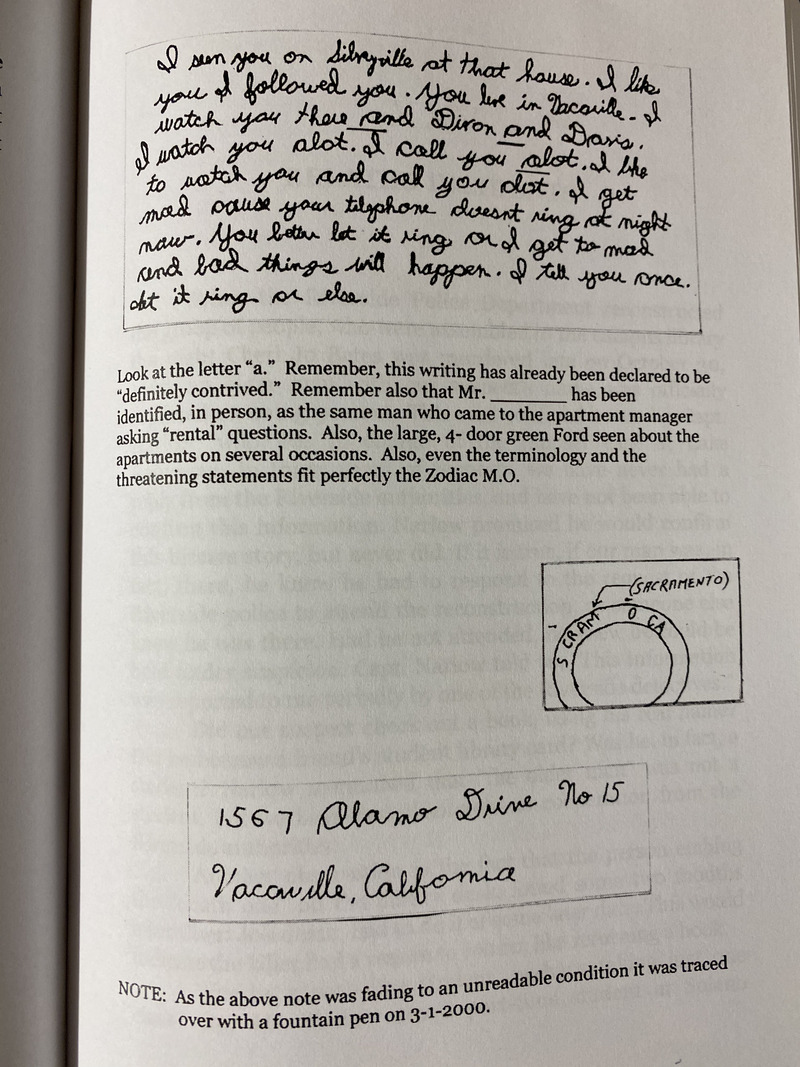 I seen you on Silvyville at that house. I like
you I followed you. You live in Vacaville. I
watch you there and Dixon and Davis.
I watch you alot. I call you alot. I like
to watch you and call you alot. I get
mad cause your telyphone doesnt ring at night
now. You better let it ring or I get to mad
and bad things will happen. I tell you once.
let it ring or else.
Look at the letter “a.” Remember, this writing has already been declared to be
“definitely contrived.” Remember also that Mr. ________ has been
identified, in person, as the same man who came to the apartment manager
asking “rental” questions. Also, the large, 4- door green Ford seen about the
apartments on several occasions. Also, even the terminology and the
threatening statements fit perfectly the Zodiac M.O.
(SACRAMENTO)
S CRAM O CA
1567 Alamo Drive No 15
Vacaville, California
NOTE: As the above note was fading to an unreadable condition it was traced
over with a fountain pen on 3-1-2000.